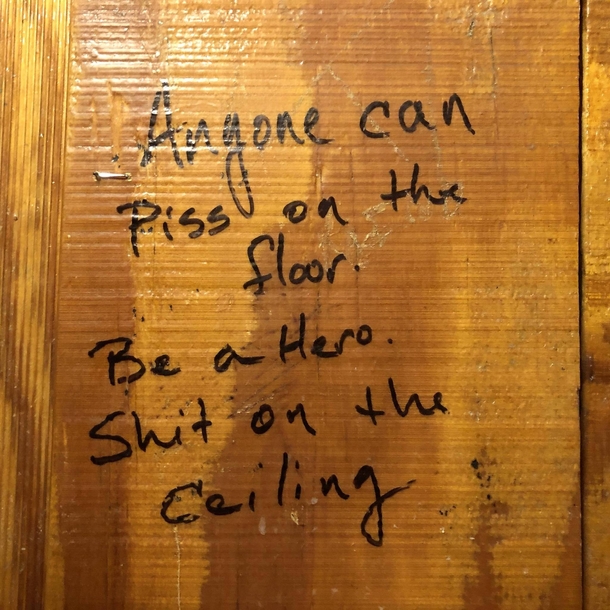 Anyone can
Piss on the
floor.
Be a Hero.
Shit on the
Ceiling